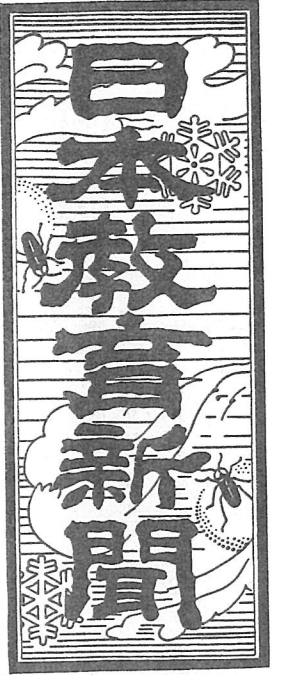 日本教育新聞